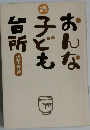 おんな
子ども
台所